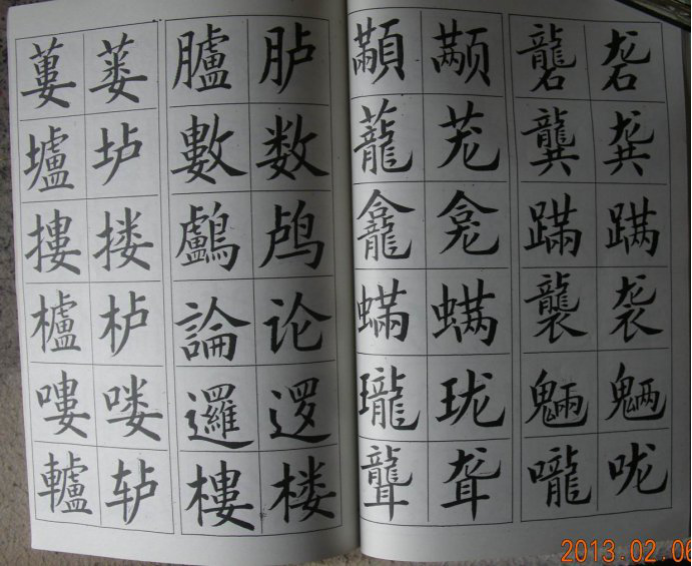 蔞 蒌 臚 胪 顢 颟 礱 砻
壚 垆 數 数 蘢 茏 龔 龚
摟 搂 鸕 鸬 龕 龛 蹣 蹒
櫨 栌 論 论 蟎 螨 襲 袭
嘍 喽 邏 逻 瓏 珑 魎 魉
轤 轳 樓 楼 聾 聋 嚨 咙
2013.02.06